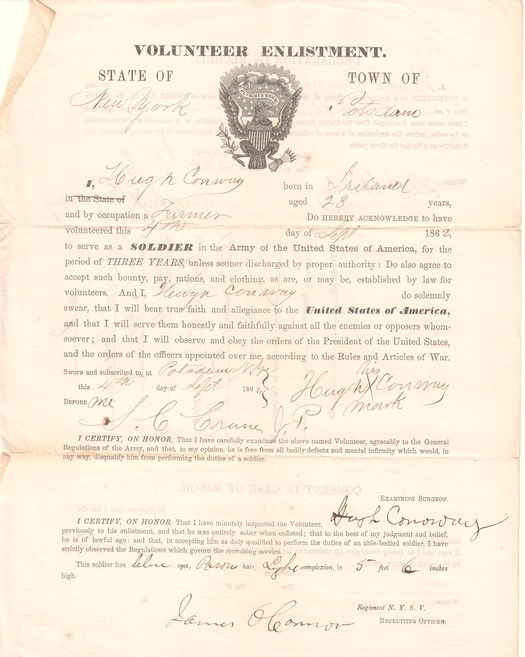 VOLUNTEER ENLISTMENT.
STATE OF TOWN OF
New York Potsdam
I, Hugh Conway born in Ireland
in the State of aged 23 years,
and by occupation a Farmer Do HEREBY ACKNOWLEDGE to have
volunteered this 4th day of Sept 1862,
to serve as a SOLDIER in the Army of the United States of America, for the
period of THREE YEARS, unless sooner discharged by proper authority: Do also agree to
accept such bounty, pay, rations, and clothing, as are, or may be, established by law for
volunteers. And I, Heugh Conway do solemnly
swear, that I will bear true faith and allegiance to the United States of America,
and that I will serve them honestly and faithfully against all the enemies or opposers whom-
soever; and that I will observe and obey the orders of the President of the United States,
and the orders of the officers appointed over me, according to the Rules and Articles of War.
Sworn and subscribed to, at Potsdam N.Y.
this 4th day of Sept 1862
Hugh his X mark Conway
BEFORE me
S. C. J. P.
I CERTIFY, ON HONOR, That I have carefully examined the above named Volunteer, agreeably to the General
Regulations of the Army, and that, in my opinion, he is free from all bodily defects and mental infirmity which would, in
any way, disqualify him from performing the duties of a soldier.
CONSENT IN CASE OF MINOR
EXAMINING SURGEON.
I CERTIFY, ON HONOR, That I have minutely inspected the Volunteer, Hugh Conoway
previously to his enlistment, and that he was entirely sober when enlisted; that to the best of my judgment and belief,
he is of lawful age; and that, in accepting him as duly qualified to perform the duties of an able-bodied soldier, I have
strictly observed the Regulations which govern the recruiting service.
This soldier has blue eyes, Brown hair, Light complexion, is 5 feet 6 inches
high.
James O'Connor
Regiment N. Y. S. V.
RECRUITING OFFICER.